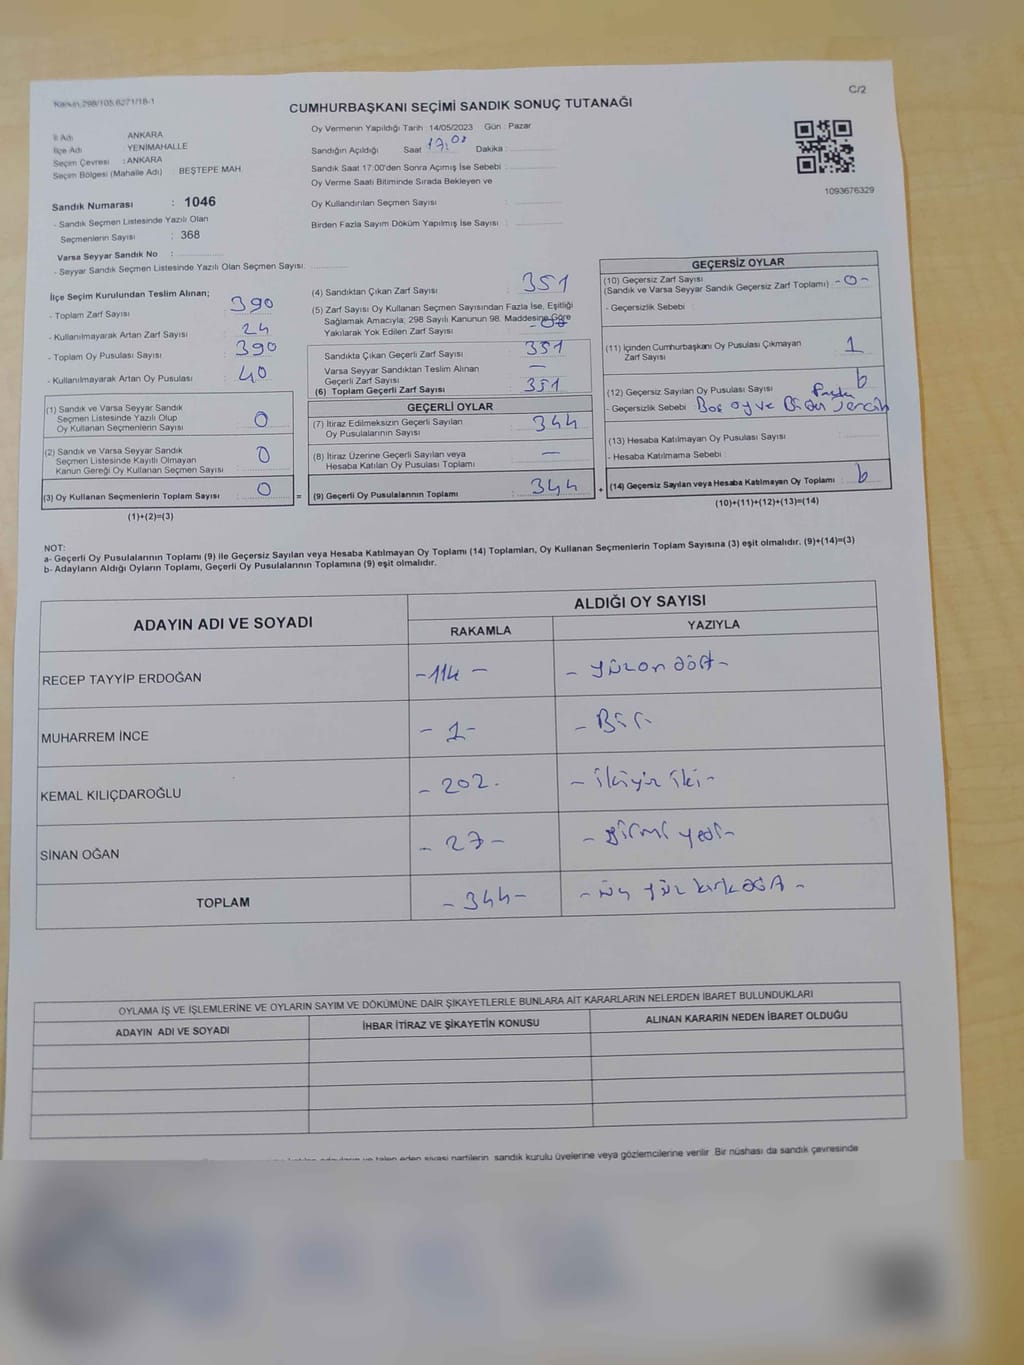 Kanun 298/105,6271/18-1
C/2
CUMHURBAŞKANI SEÇİMİ SANDIK SONUÇ TUTANAĞI
İl Adı ANKARA
İlçe Adı YENİMAHALLE
Seçim Çevresi : ANKARA
Seçim Bölgesi (Mahalle Adı) : BEŞTEPE MAH
Oy Vermenin Yapıldığı Tarih 14/05/2023 Gün : Pazar
Sandığın Açıldığı Saat Dakika :
Sandık Saat 17:00'den Sonra Açımış İse Sebebi :
Oy Verme Saati Bitiminde Sırada Bekleyen ve
Oy Kullandırılan Seçmen Sayısı :
Birden Fazla Sayım Döküm Yapılmış İse Sayısı :
1093676329
Sandık Numarası : 1046
- Sandık Seçmen Listesinde Yazılı Olan
Seçmenlerin Sayısı : 368
Varsa Seyyar Sandık No :
- Seyyar Sandık Seçmen Listesinde Yazılı Olan Seçmen Sayısı:
İlçe Seçim Kurulundan Teslim Alınan;
- Toplam Zarf Sayısı : 390
- Kullanılmayarak Artan Zarf Sayısı : 24
- Toplam Oy Pusulası Sayısı : 390
- Kullanılmayarak Artan Oy Pusulası : 40
(1) Sandık ve Varsa Seyyar Sandık
Seçmen Listesinde Yazılı Olup
Oy Kullanan Seçmenlerin Sayısı : 0
(2) Sandık ve Varsa Seyyar Sandık
Seçmen Listesinde Kayıtlı Olmayan
Kanun Gereği Oy Kullanan Seçmen Sayısı : 0
(3) Oy Kullanan Seçmenlerin Toplam Sayısı : 0 =
(1)+(2)=(3)
(4) Sandıktan Çıkan Zarf Sayısı : 351
(5) Zarf Sayısı Oy Kullanan Seçmen Sayısından Fazla İse, Eşitliği
Sağlamak Amacıyla; 298 Sayılı Kanunun 98. Maddesine Göre
Yakılarak Yok Edilen Zarf Sayısı :
Sandıkta Çıkan Geçerli Zarf Sayısı : 351
Varsa Seyyar Sandıktan Teslim Alınan
Geçerli Zarf Sayısı : —
(6) Toplam Geçerli Zarf Sayısı : 351
GEÇERLİ OYLAR
(7) İtiraz Edilmeksizin Geçerli Sayılan
Oy Pusulalarının Sayısı : 344
(8) İtiraz Üzerine Geçerli Sayılan veya
Hesaba Katılan Oy Pusulası Toplamı : —
(9) Geçerli Oy Pusulalarının Toplamı : 344 +
GEÇERSİZ OYLAR
(10) Geçersiz Zarf Sayısı
(Sandık ve Varsa Seyyar Sandık Geçersiz Zarf Toplamı) : -0-
- Geçersizlik Sebebi :
(11) İçinden Cumhurbaşkanı Oy Pusulası Çıkmayan
Zarf Sayısı : 1
(12) Geçersiz Sayılan Oy Pusulası Sayısı : 6
- Geçersizlik Sebebi : Boş oy ve Birden fazla tercih
(13) Hesaba Katılmayan Oy Pusulası Sayısı :
- Hesaba Katılmama Sebebi :
(14) Geçersiz Sayılan veya Hesaba Katılmayan Oy Toplamı : 6
(10)+(11)+(12)+(13)=(14)
NOT:
a- Geçerli Oy Pusulalarının Toplamı (9) ile Geçersiz Sayılan veya Hesaba Katılmayan Oy Toplamı (14) Toplamları, Oy Kullanan Seçmenlerin Toplam Sayısına (3) eşit olmalıdır. (9)+(14)=(3)
b- Adayların Aldığı Oyların Toplamı, Geçerli Oy Pusulalarının Toplamına (9) eşit olmalıdır.
ADAYIN ADI VE SOYADI
ALDIĞI OY SAYISI
RAKAMLA YAZIYLA
RECEP TAYYİP ERDOĞAN -114- - yüzon dört -
MUHARREM İNCE -1- - Bir -
KEMAL KILIÇDAROĞLU -202- - ikiyüz iki -
SİNAN OĞAN -27- - yirmi yedi -
TOPLAM -344- - üç yüz kırk dört -
OYLAMA İŞ VE İŞLEMLERİNE VE OYLARIN SAYIM VE DÖKÜMÜNE DAİR ŞİKAYETLERLE BUNLARA AİT KARARLARIN NELERDEN İBARET BULUNDUKLARI
ADAYIN ADI VE SOYADI İHBAR İTİRAZ VE ŞİKAYETİN KONUSU ALINAN KARARIN NEDEN İBARET OLDUĞU
talep eden siyasi partilerin, sandık kurulu üyelerine veya gözlemcilerine verilir. Bir nüshası da sandık çevresinde